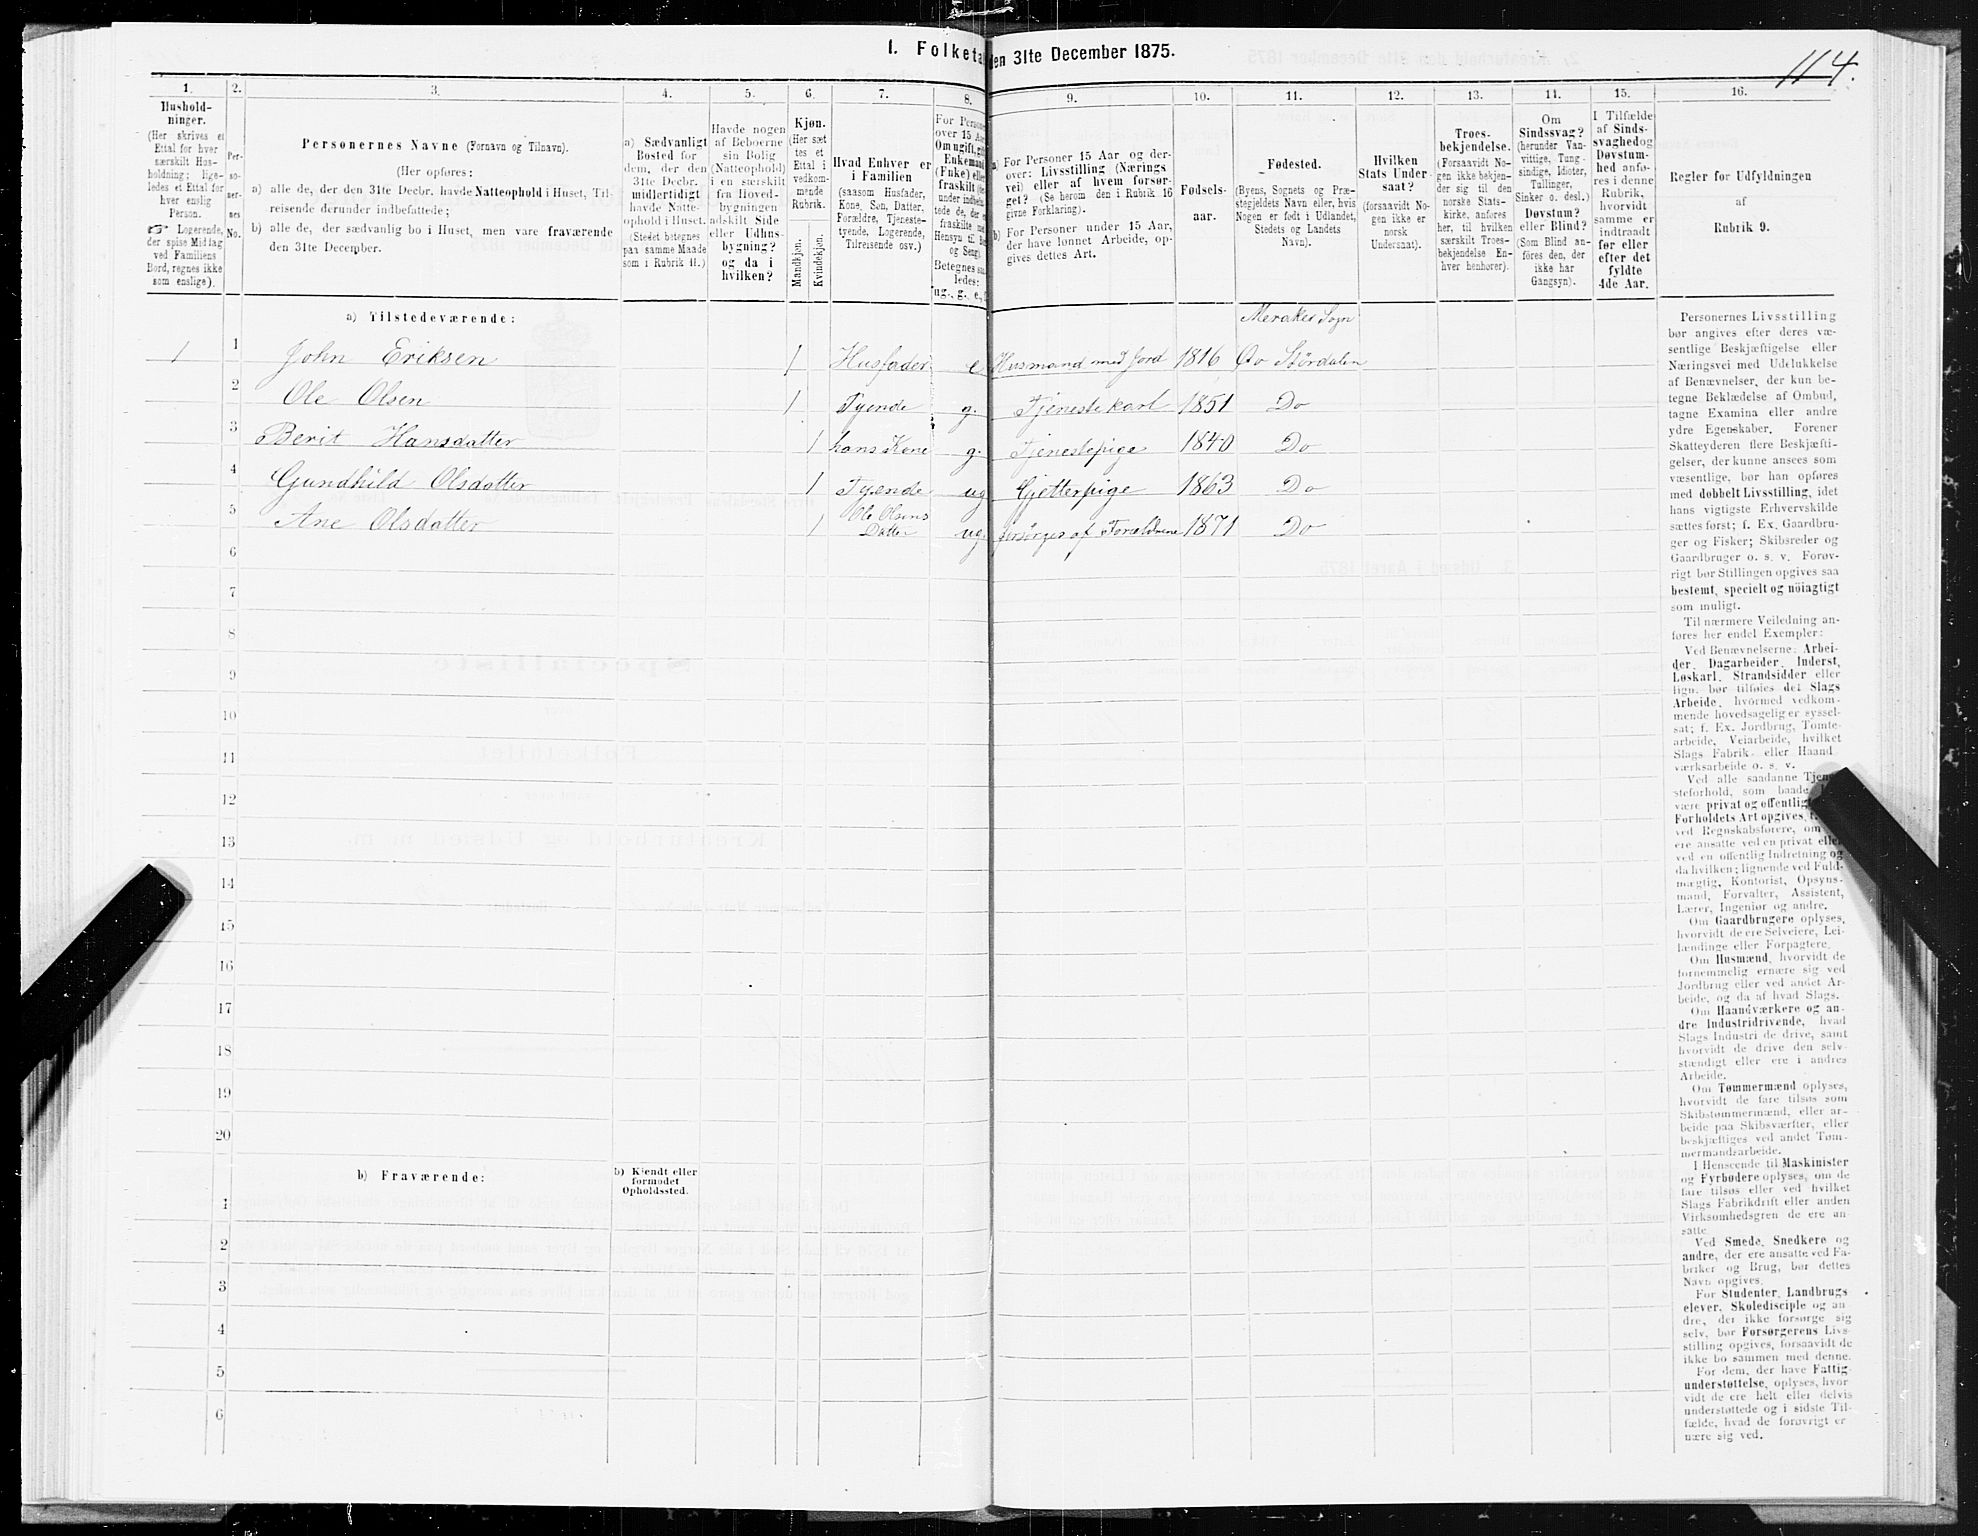 1. Folketa den 31te December 1875.
114.
1. 2. 3. 4. 5. 6. 7. 8. 9. 10. 11. 12. 13. 14. 15. 16.
Hushold-
ninger.
(Her skrives et
Ettal for hver
særskilt Hus-
holdning; lige-
ledes et Ettal for
hver enslig
Person.
☞ Logerende,
der spise Middag
ved Familiens
Bord, regnes ikke
som enslige).
Per-
so-
ner-
nes
No.
Personernes Navne (Fornavn og Tilnavn).
(Her opføres:
a) alle de, der den 31te Decbr. havde Natteophold i Huset, Til-
reisende derunder indbefattede;
b) alle de, der sædvanlig bo i Huset, men vare fraværende
den 31te December.
a) Sædvanligt
Bosted for
dem, der den
31te Decbr.
midlertidigt
havde Natte-
ophold i Huset.
(Stedet betegnes
paa samme Maade
som i Rubrik 11.)
Havde nogen
af Beboerne
sin Bolig
(Natteophold)
i en særskilt
fra Hoved-
bygningen
adskilt Side
eller Udhus-
bygning?
og da i
hvilken?
Kjøn.
(Her sæt
tes et
Ettal i
vedkom-
mende
Rubrik.
Mandkjøn.
Kvindekjøn.
Hvad Enhver er
i Familien
(saasom Husfader,
Kone, Søn, Datter,
Forældre, Tjeneste-
tyende, Logerende,
Tilreisende osv.)
For Persone
over 15 Aar
Om ugift, gift
Enkemand
(Enke) eller
fraskilt
Betegnes saa
ledes:
ug., g., e.,
a) For Personer 15 Aar og der-
over: Livsstilling (Nærings
vei) eller af hvem forsør-
get? (Se herom den i Rubrik 16
givne Forklaring).
b) For Personer under 15 Aar,
der have lønnet Arbeide, op-
gives dettes Art.
Fødsels-
aar.
Fødested.
(Byens, Sognets og Præ-
stegjeldets Navn eller, hvis
Nogen er født i Udlandet,
Stedets og Landets
Navn).
Hvilken
Stats Under-
saat?
(forsaavidt No-
gen ikke er
norsk
Undersaat).
Troes-
bekjendelse.
(Forsaavidt No-
gen ikke bekjen-
der sig til den
norske Stats-
kirke, anføres
her, til hvilken
særskilt Troes-
bekjendelse En-
hver henhører).
Om
Sindssvag?
(herunder Van-
vittige, Tung-
sindige, Idioter,
Tullinger,
Sinker o. desl.)
Døvstum?
eller Blind?
(Som Blind an-
føres den, der
ikke har
Gangsyn).
I Tilfælde
af Sinds-
svaghed og
Døvstum-
hed anfø-
res i denne
Rubrik,
hvorvidt
samme er
indtraadt
før eller
efter det
fyldte
4de Aar.
Regler for Udfyldningen
af
Rubrik 9.
a) Tilstedeværende:
Merakes Sogn
1 1 John Eriksen 1 Husfader e Husmand med Jord 1816 Øv Størdalen
2 Ole Olsen 1 Tyende g. Tjenestekarl 1851 Do
3 Berit Hansdatter 1 hans Kone g. Tjenestepige 1840 Do
4 Gundhild Olsdatter 1 Tyende ug Gjetterpige 1863 Do
5 Ane Olsdatter 1 Ole Olsens Datter ug. forsørges af Forældrene 1871 Do
6
7
8
9
10
11
12
13
14
15
16
17
18
19
20
b) Fraværende:
b) Kjendt eller
formodet
Opholdssted.
1
2
3
4
5
6
Personernes Livsstilling
bør angives efter deres væ-
sentlige Beskjæftigelse eller
Næringsvei med Udelukkelse
af Benævnelser, der kun be-
tegne Beklædelse af Ombud,
tagne Examina eller andre
ydre Egenskaber. Forener
Skatteyderen flere Beskjæfti-
gelser, der kunne ansees som
væsentlige, bør han opføres
med dobbelt Livsstilling, idet
hans vigtigste Erhvervskilde
sættes først; f. Ex. Gaardbru-
ger og Fisker; Skibsreder og
Gaardbruger o. s. v. Forøv-
rigt bør Stillingen opgives saa
bestemt, specielt og nöiagtigt
som muligt.
Til nærmere Veiledning an-
føres her endel Exempler:
Ved Benævnelserne: Arbei-
der, Dagarbeider, Inderst,
Løskarl, Strandsidder eller
lign. bør tilføies det Slags
Arbeide, hvormed vedkom-
mende hovedsagelig er syssel-
sat; f. Ex. Jordbrug, Tomte-
arbeide, Veiarbeide, hvilket
Slags Fabrik- eller Haand
værksarbeide o. s. v.
Ved alle saadanne Tjene-
steforhold, som baade
være privat og offentlig
Forholdets Art opgives,
ved Regnskabsførere, om
ere ansatte ved en privat eller
ved en offentlig Indretning og
da hvilken; lignende ved Fuld-
mægtig, Kontorist, Opsyns-
mand, Forvalter, Assistent,
Lærer, Ingeniør og andre.
Om Gaardbrugere oplyses,
hvorvidt de ere Selveiere, Lei-
lændinge eller Forpagtere.
Om Husmænd, hvorvidt de
fornemmelig ernære sig ved
Jordbrug eller ved andet Ar-
beide, og da af hvad Slags.
Om Haandværkere og an-
dre Industridrivende, hvad
Slags Industri de drive, samt
hvorvidt de drive den selv-
stændigt eller ere i andres
Arbeide.
Om Tømmermænd oplyses,
hvorvidt de fare tilsøs som
Skibstømmermænd, eller ar-
beide paa Skibsværfter, eller
beskjæftiges ved andet Tøm-
mermandsarbeide.
I Henseende til Maskinister
og Fyrbødere oplyses, om de
fare tilsøs eller ved hvilket
Slags Fabrikdrift eller anden
Virksomhedsgren de ere an-
satte.
Ved Smede, Snedkere og
andre, der ere ansatte ved Fa-
briker og Brug, bør dettes
Navn opgives.
For Studenter, Landbrugs
elever, Skoledisciple og an
dre, der ikke forsørge sig
selv, bør Forsørgerens Livs-
stilling opgives, forsaavidt de
ikke bo sammen med denne.
For dem, der have Fattig-
understøttelse, oplyses, hvor
vidt de ere helt eller delvis
understøttede og i sidste Til-
fælde, hvad de forøvrigt er
nære sig ved.